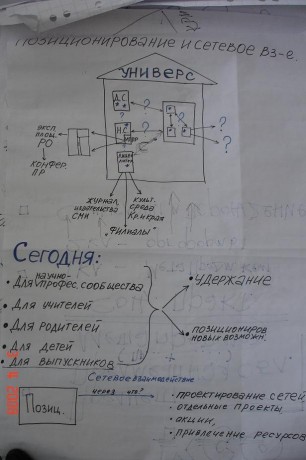 ПОЗИЦИОНИРОВАНИЕ И СЕТЕВОЕ ВЗ-Е.
УНИВЕРС
Д.С.
?
?
?
Н.С.
?
?
?
ЭКСП.
ПЛОЩ.
РО
КОНФЕР.
ПР
ЖУРНАЛ,
ИЗДАТЕЛЬСТВА
СМИ
КУЛЬТ.
СРЕДА
КР. И КРАЯ
"ФИЛИАЛЫ"
СЕГОДНЯ:
НАУЧНО-
• ДЛЯ ПРОФЕС. СООБЩЕСТВА
• ДЛЯ УЧИТЕЛЕЙ
• ДЛЯ РОДИТЕЛЕЙ
• ДЛЯ ДЕТЕЙ
• ДЛЯ ВЫПУСКНИКОВ
• УДЕРЖАНИЕ
• ПОЗИЦИОНИРОВ
НОВЫХ ВОЗМОЖН.
ПОЗИЦ.
СЕТЕВОЕ ВЗАИМОДЕЙСТВИЕ
ЧЕРЕЗ ЧТО?
• ПРОЕКТИРОВАНИЕ СЕТЕЙ
• ОТДЕЛЬНЫЕ ПРОЕКТЫ
• АКЦИИ,
• ПРИВЛЕЧЕНИЕ РЕСУРСОВ